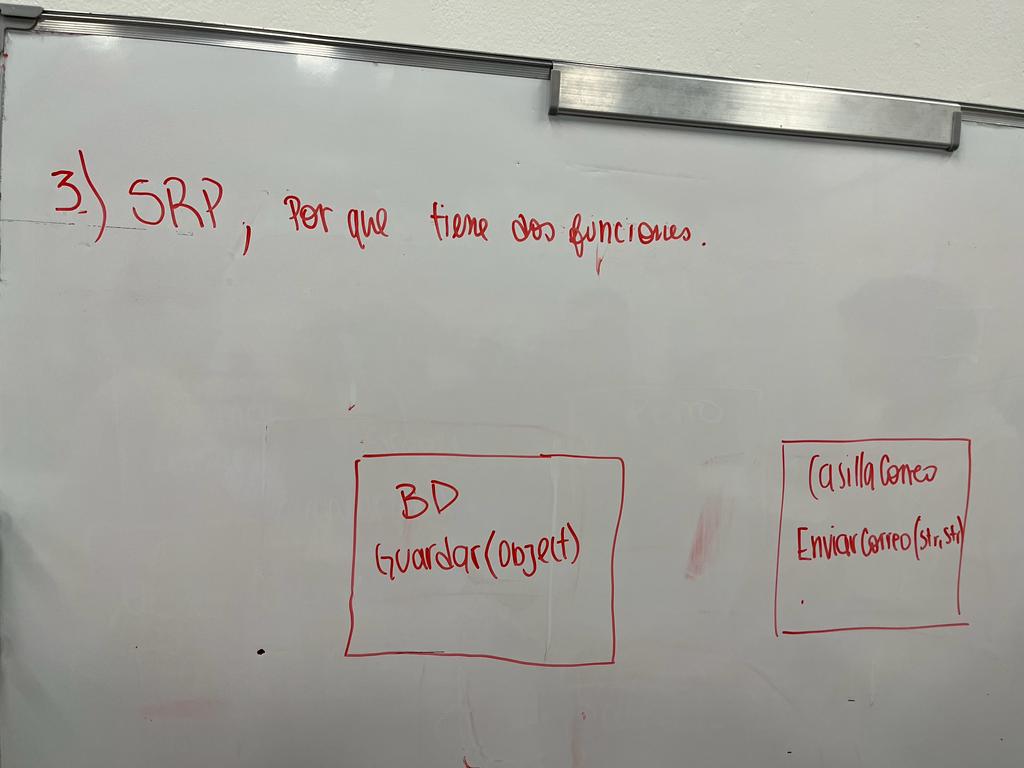 3.) SRP, Por que tiene dos funciones.
BD
Guardar(Object)
CasillaCorreo
EnviarCorreo(str, str)